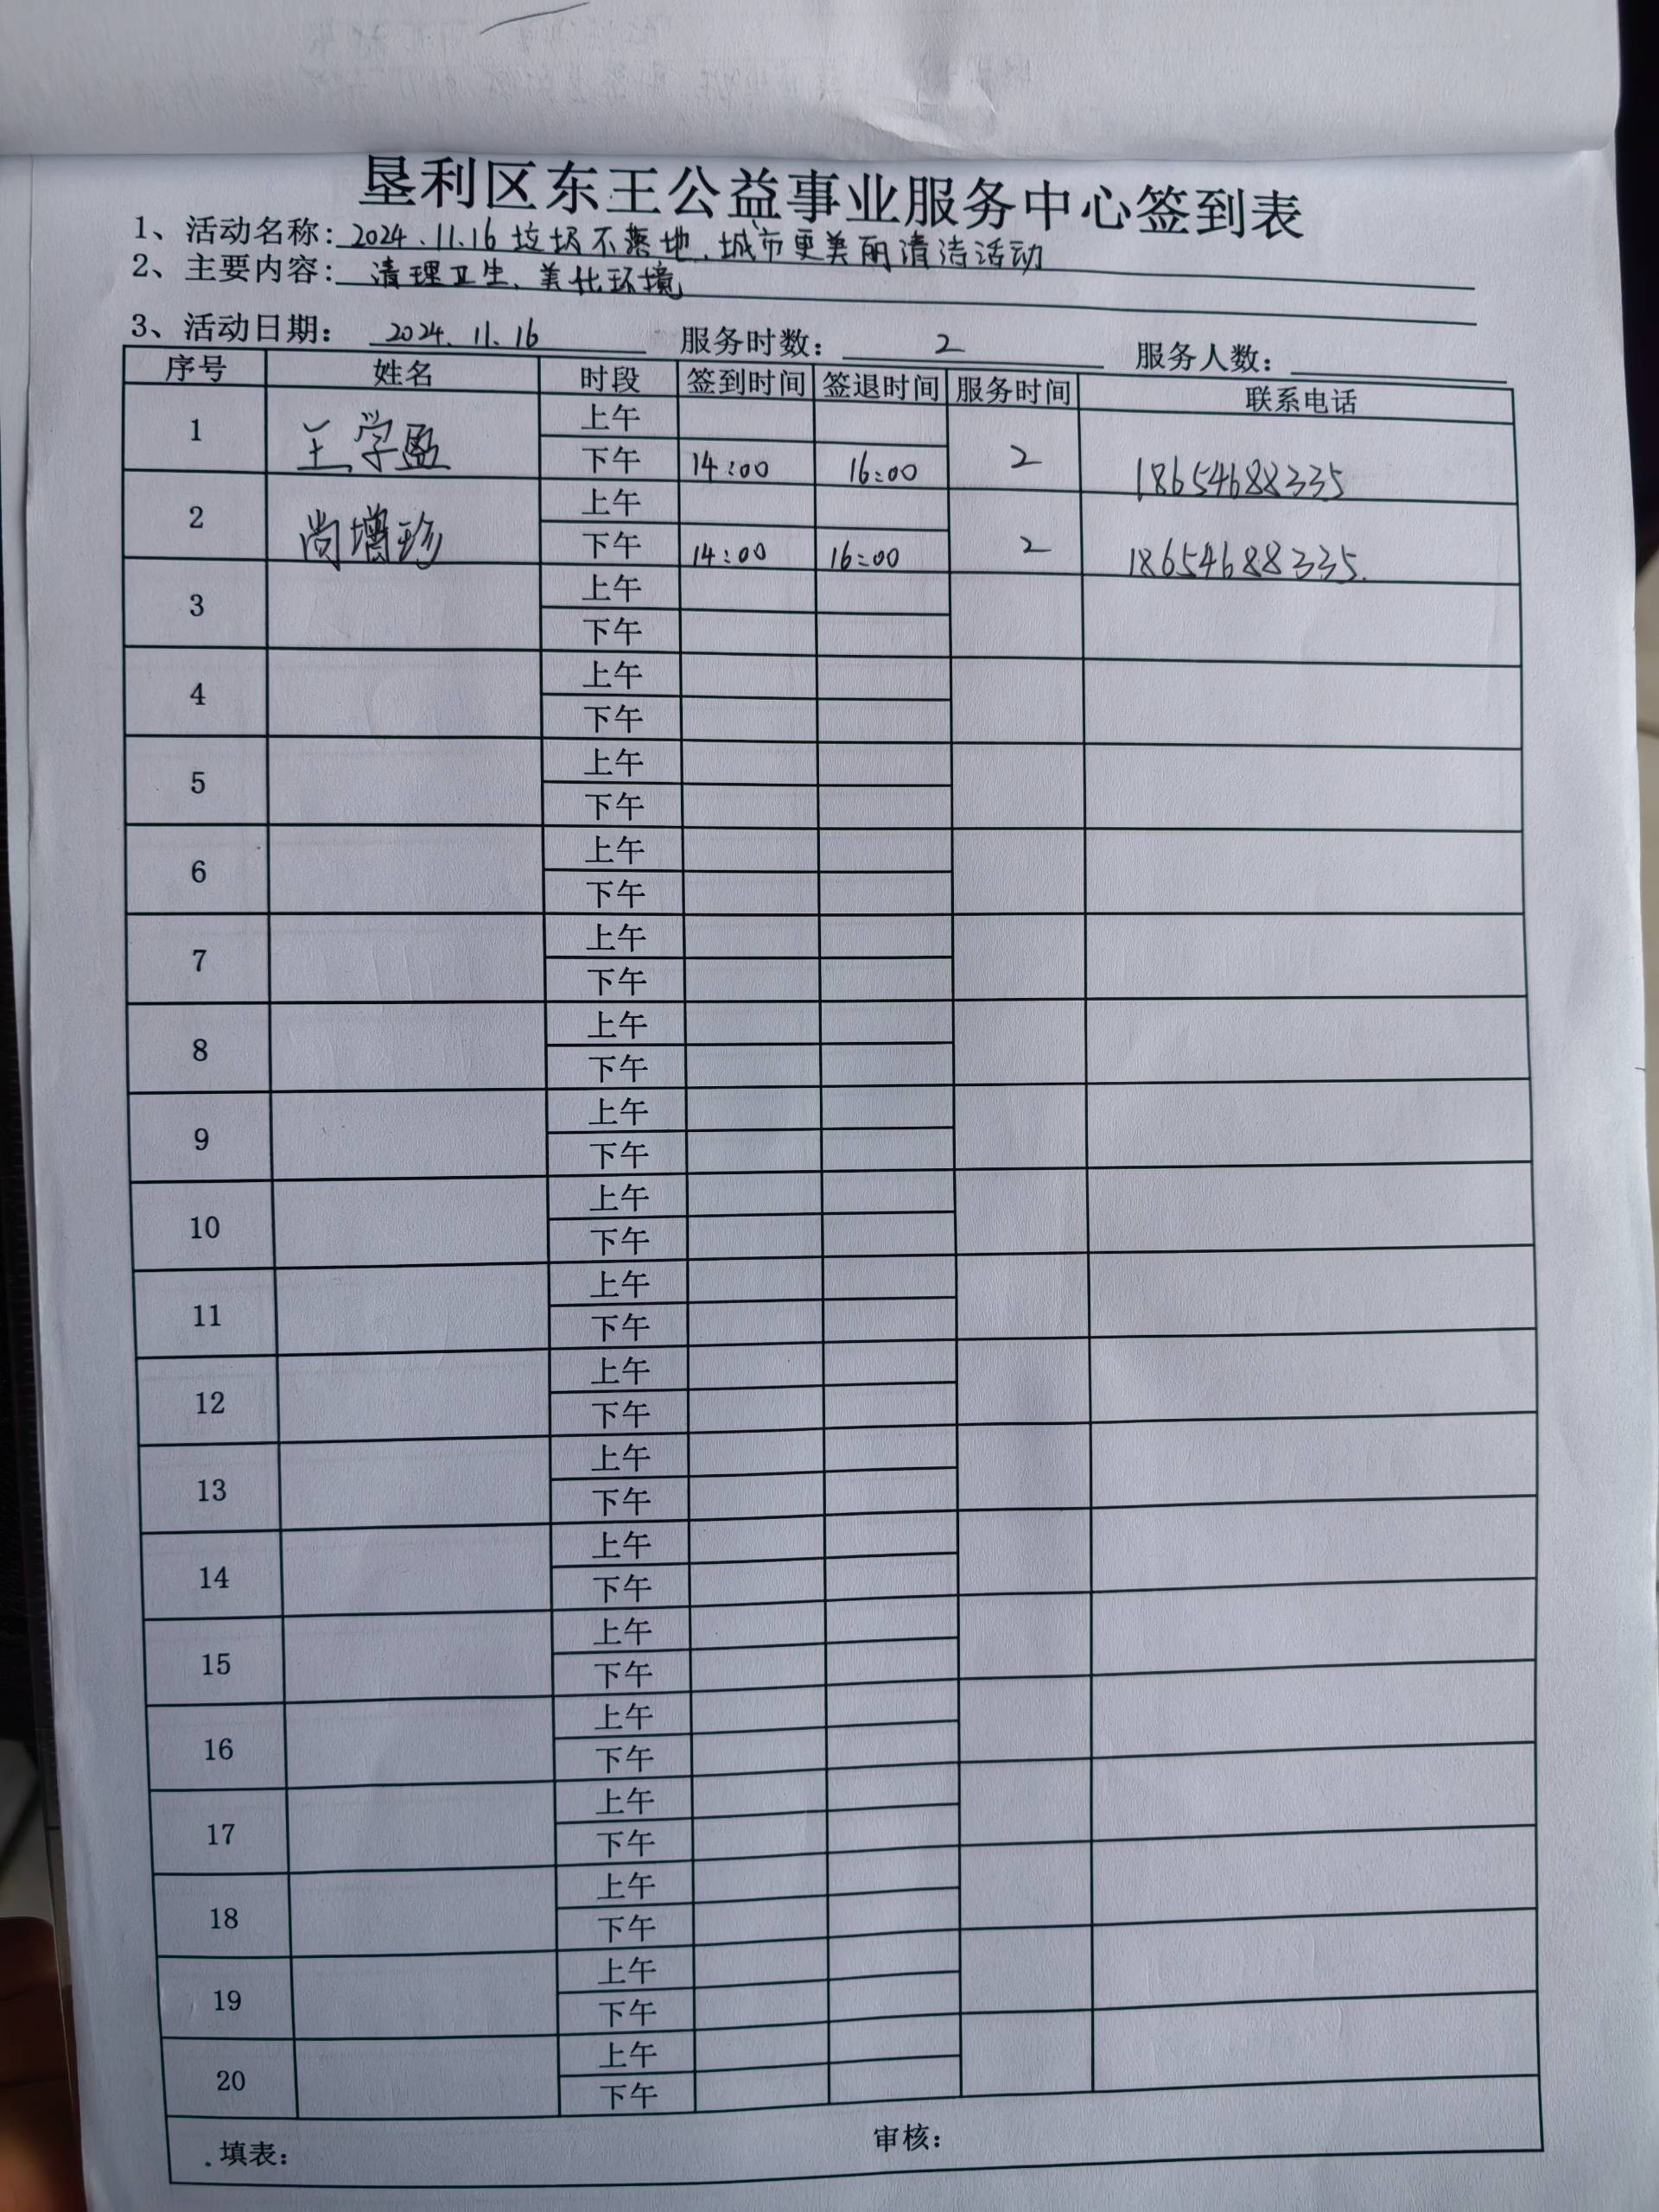 垦利区东王公益事业服务中心签到表
1、活动名称: 2024.11.16 垃圾不落地、城市更美丽清洁活动
2、主要内容: 清理卫生、美化环境
3、活动日期: 2024.11.16 服务时数: 2 服务人数:
序号 姓名 时段 签到时间 签退时间 服务时间 联系电话
1 王学盈 上午
下午 14:00 16:00 2 18654688335
2 尚增珍 上午
下午 14:00 16:00 2 18654688335.
3 上午
下午
4 上午
下午
5 上午
下午
6 上午
下午
7 上午
下午
8 上午
下午
9 上午
下午
10 上午
下午
11 上午
下午
12 上午
下午
13 上午
下午
14 上午
下午
15 上午
下午
16 上午
下午
17 上午
下午
18 上午
下午
19 上午
下午
20 上午
下午
填表: 审核: